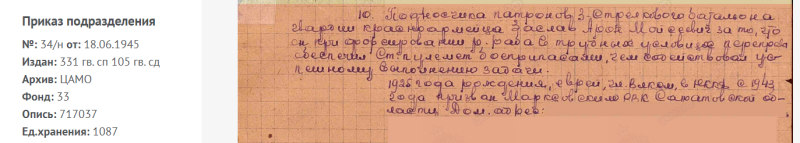 Приказ подразделения
№: 34/н от: 18.06.1945
Издан: 331 гв. сп 105 гв. сд
Архив: ЦАМО
Фонд: 33
Опись: 717037
Ед.хранения: 1087
10. Подносчика патронов 3-Стрелкового батальона
гвардии красноармейца Заслав Арон Моисеевич за то, что
он при форсировании р. Раба в трудных условиях переправы
обеспечил Ст. пулемет боеприпасами, чем содействовал ус-
пешному выполнению задачи.
1925 года рождения, еврей, чл. ВЛКСМ, в КА с 1943
года призван Марксовским РВК Саратовской об-
ласти, Дом. адрес: